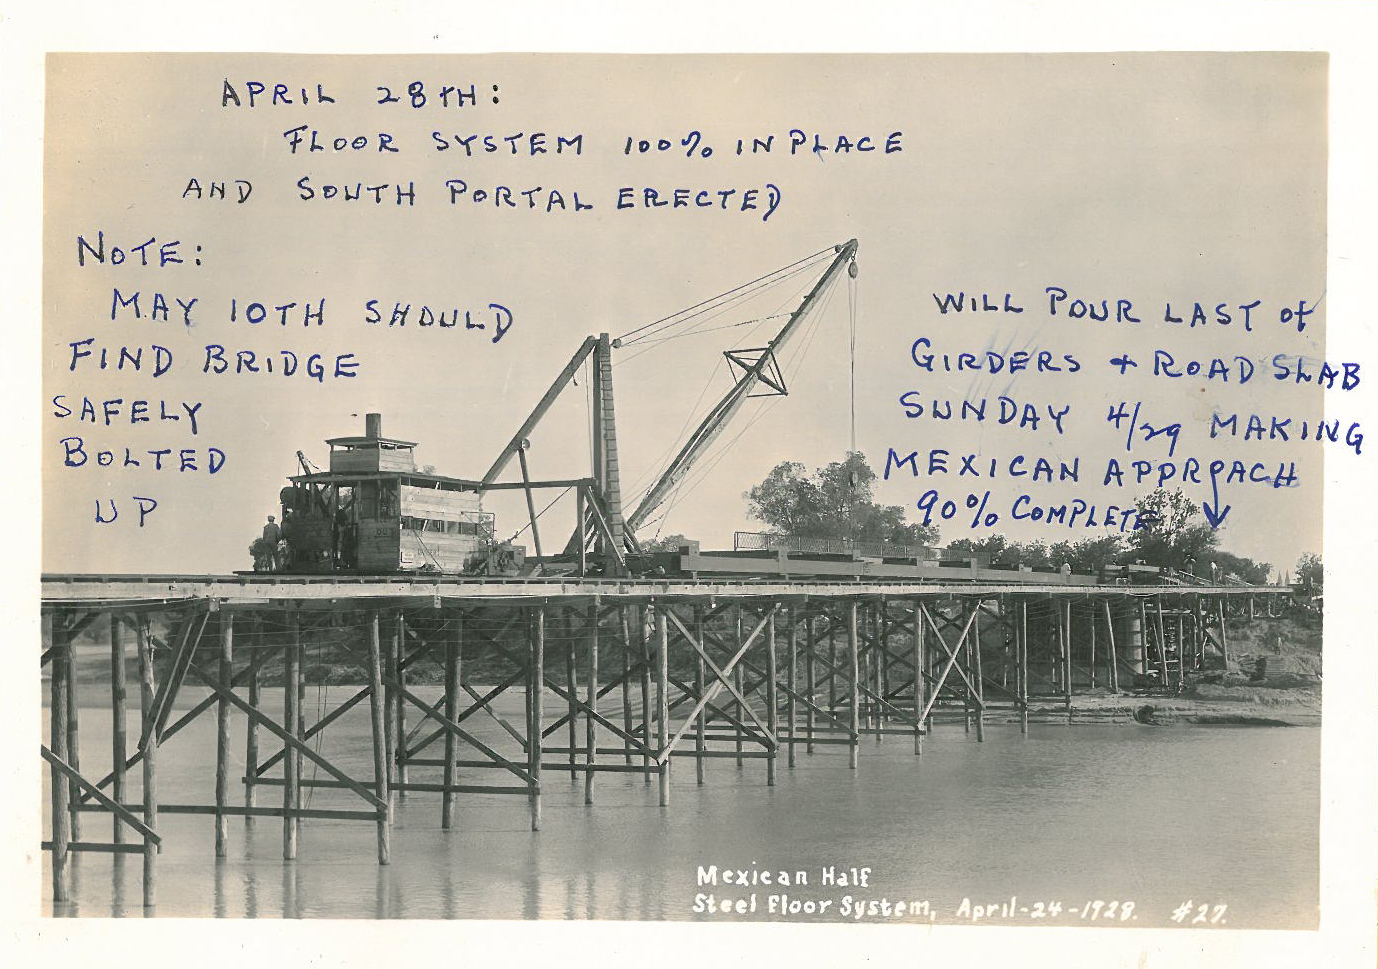 APRIL 28TH:
FLOOR SYSTEM 100% IN PLACE
AND SOUTH PORTAL ERECTED
NOTE:
MAY 10TH SHOULD
FIND BRIDGE
SAFELY
BOLTED
UP
WILL POUR LAST of
GIRDERS + ROAD SLAB
SUNDAY 4/29 MAKING
MEXICAN APPROACH
90% COMPLETE
Mexican Half
Steel Floor System, April-24-1928. #27.